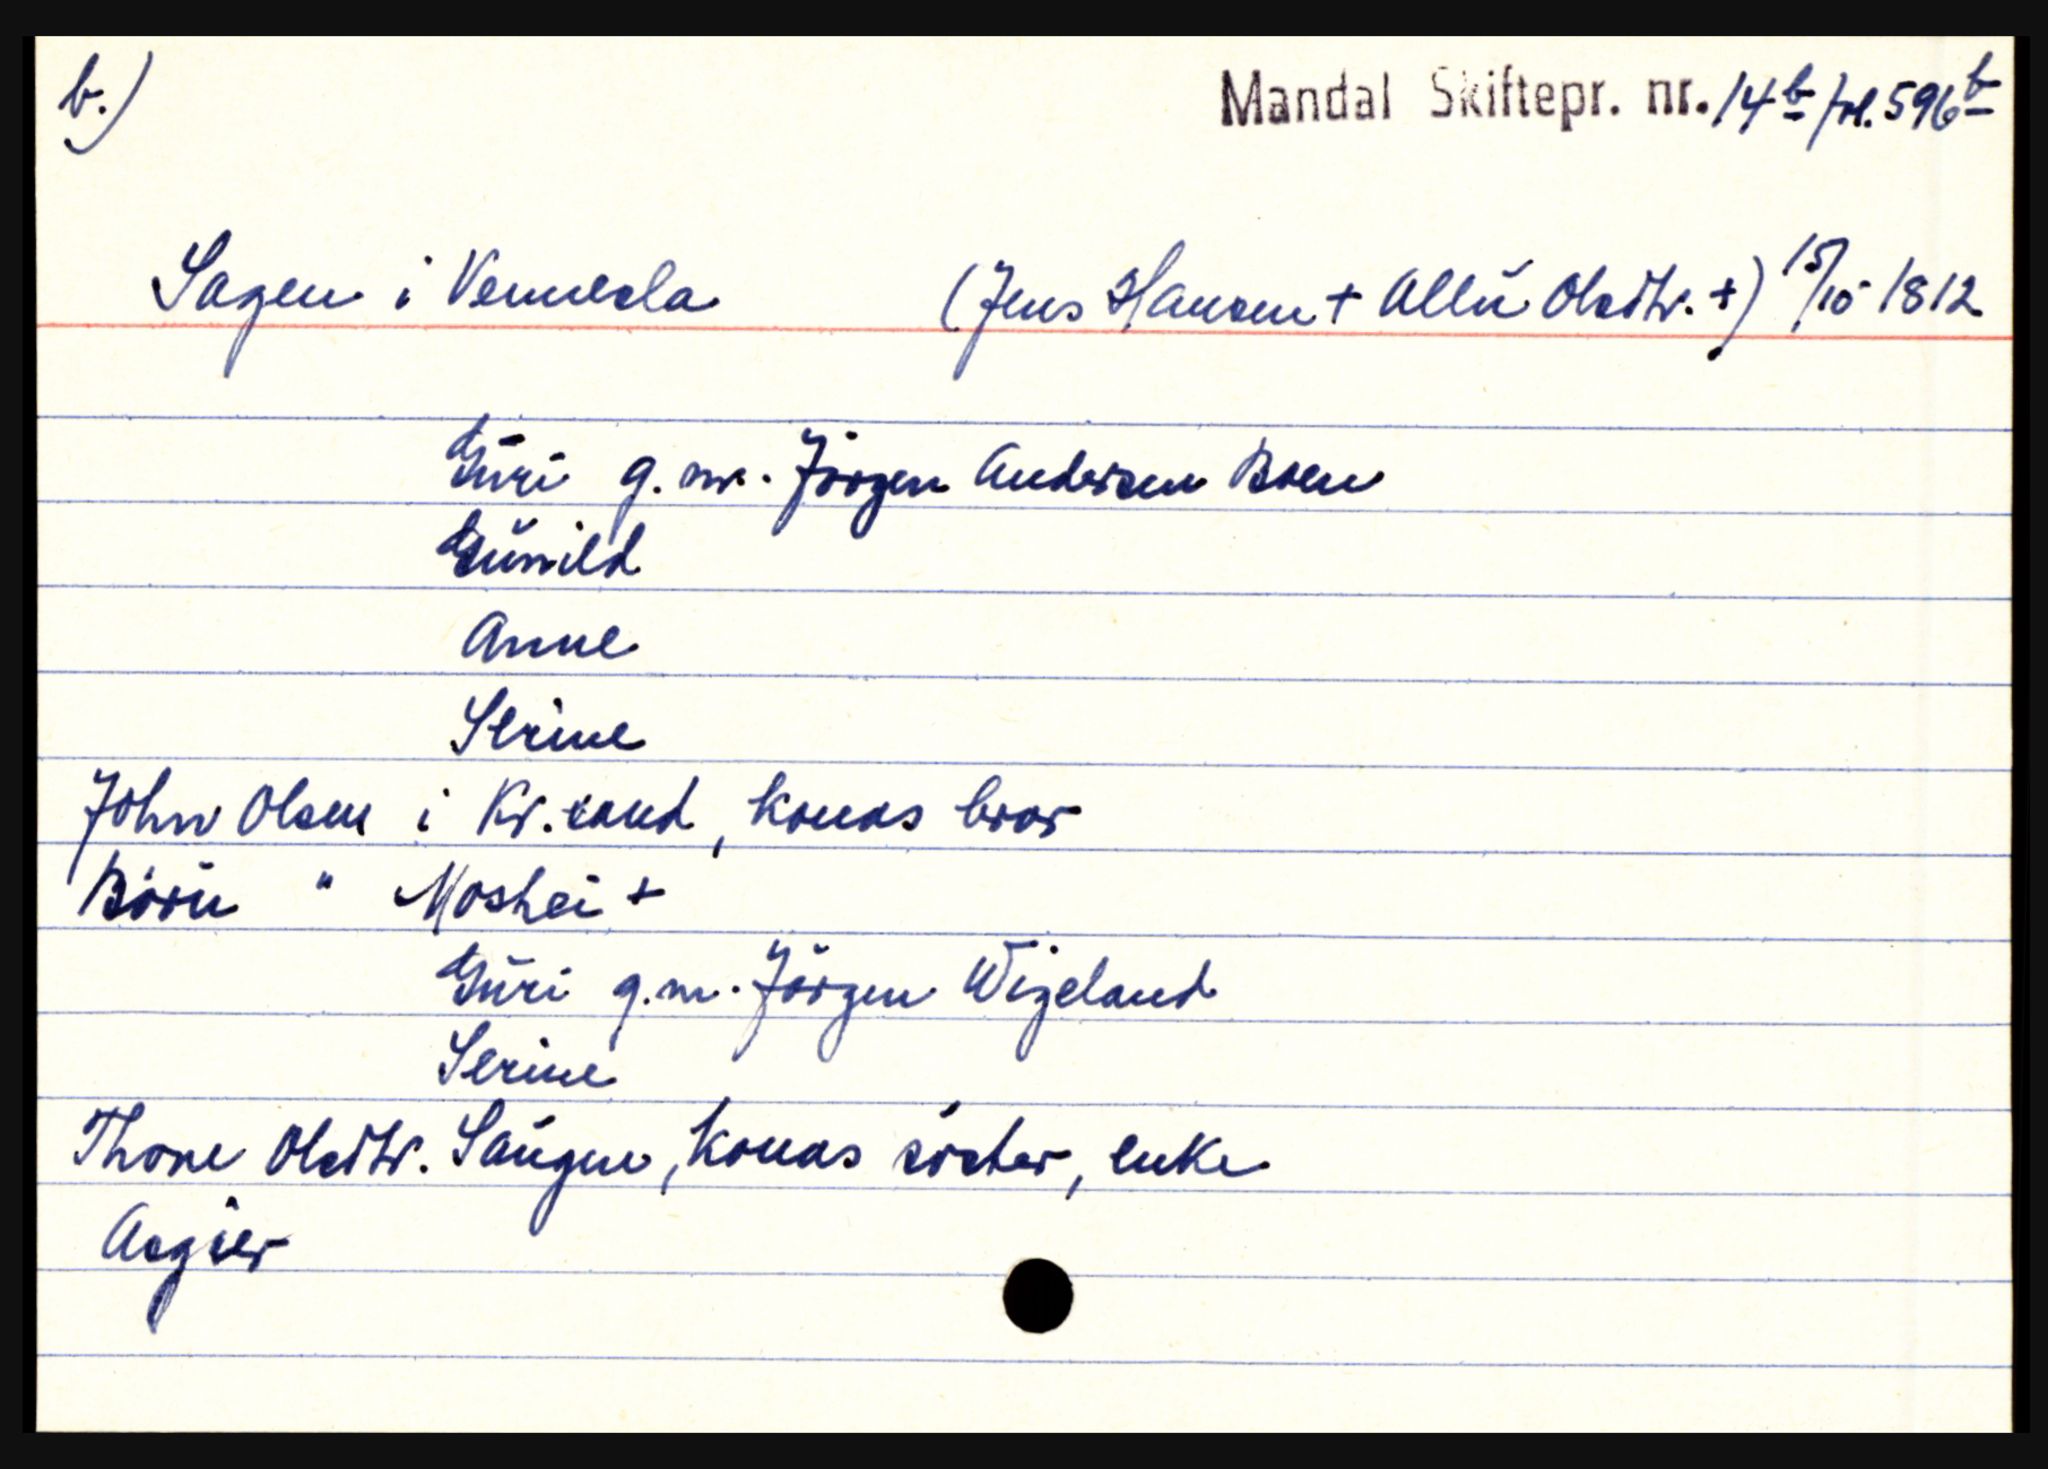 b.)
Mandal Skiftepr. nr. 14b fol. 596b
Sagen i Vennesla (Jens Hansen + Allū Olsdtr. +) 15/10 1812
Gŭri g.m. Jörgen Andersen Boen
Gŭnild
Anne
Serine
John Olsen i Kr.sand, konas bror
Börŭ " Moshei +
Gŭri g.m. Jörgen Wigeland
Serine
Thore Olsdtr. Saŭgen, konas söster, enke
Asgier